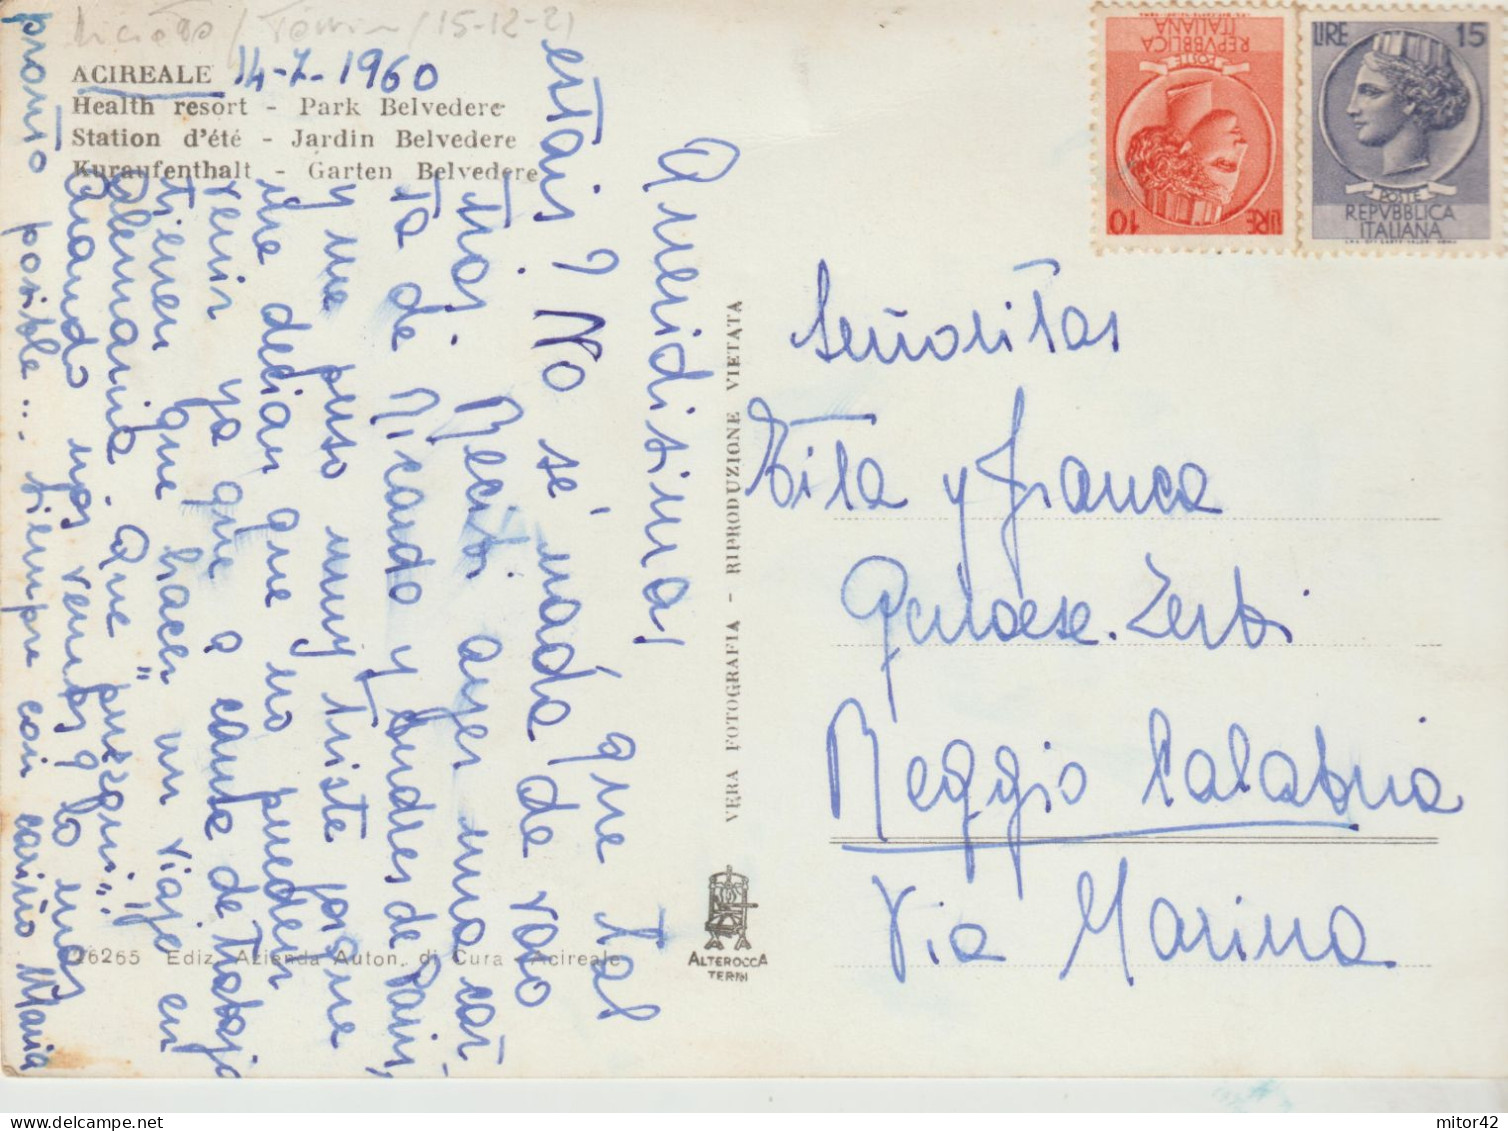 15-12-21
ACIREALE 14-7-1960
Health resort - Park Belvedere
Station d'été - Jardin Belvedere
Kuraufenthalt - Garten Belvedere
Queridisimas
que tal
estais? No sé nada de vos
otras. Recibi ayer una car
ta de Ricardo y Lourdes de Paris,
y me puso muy triste porque
me decian que no pueden
venir ya que a causa de trabajo
tienen que hacer un viaje en
Alemania. Que "purzqui"!
Quando nos vemos? Lo mas
pronto posible... siempre con cariño Maria
26265 Ediz. Azienda Auton. di Cura - Acireale
VERA FOTOGRAFIA - RIPRODUZIONE VIETATA
ALTEROCCA
TERNI
LIRE 10
POSTE
REPVBBLICA
ITALIANA
LIRE 15
POSTE
REPVBBLICA
ITALIANA
Señoritas
Tita y Franca
Genoese-Zerbi
Reggio Calabria
Via Marina
mitor42